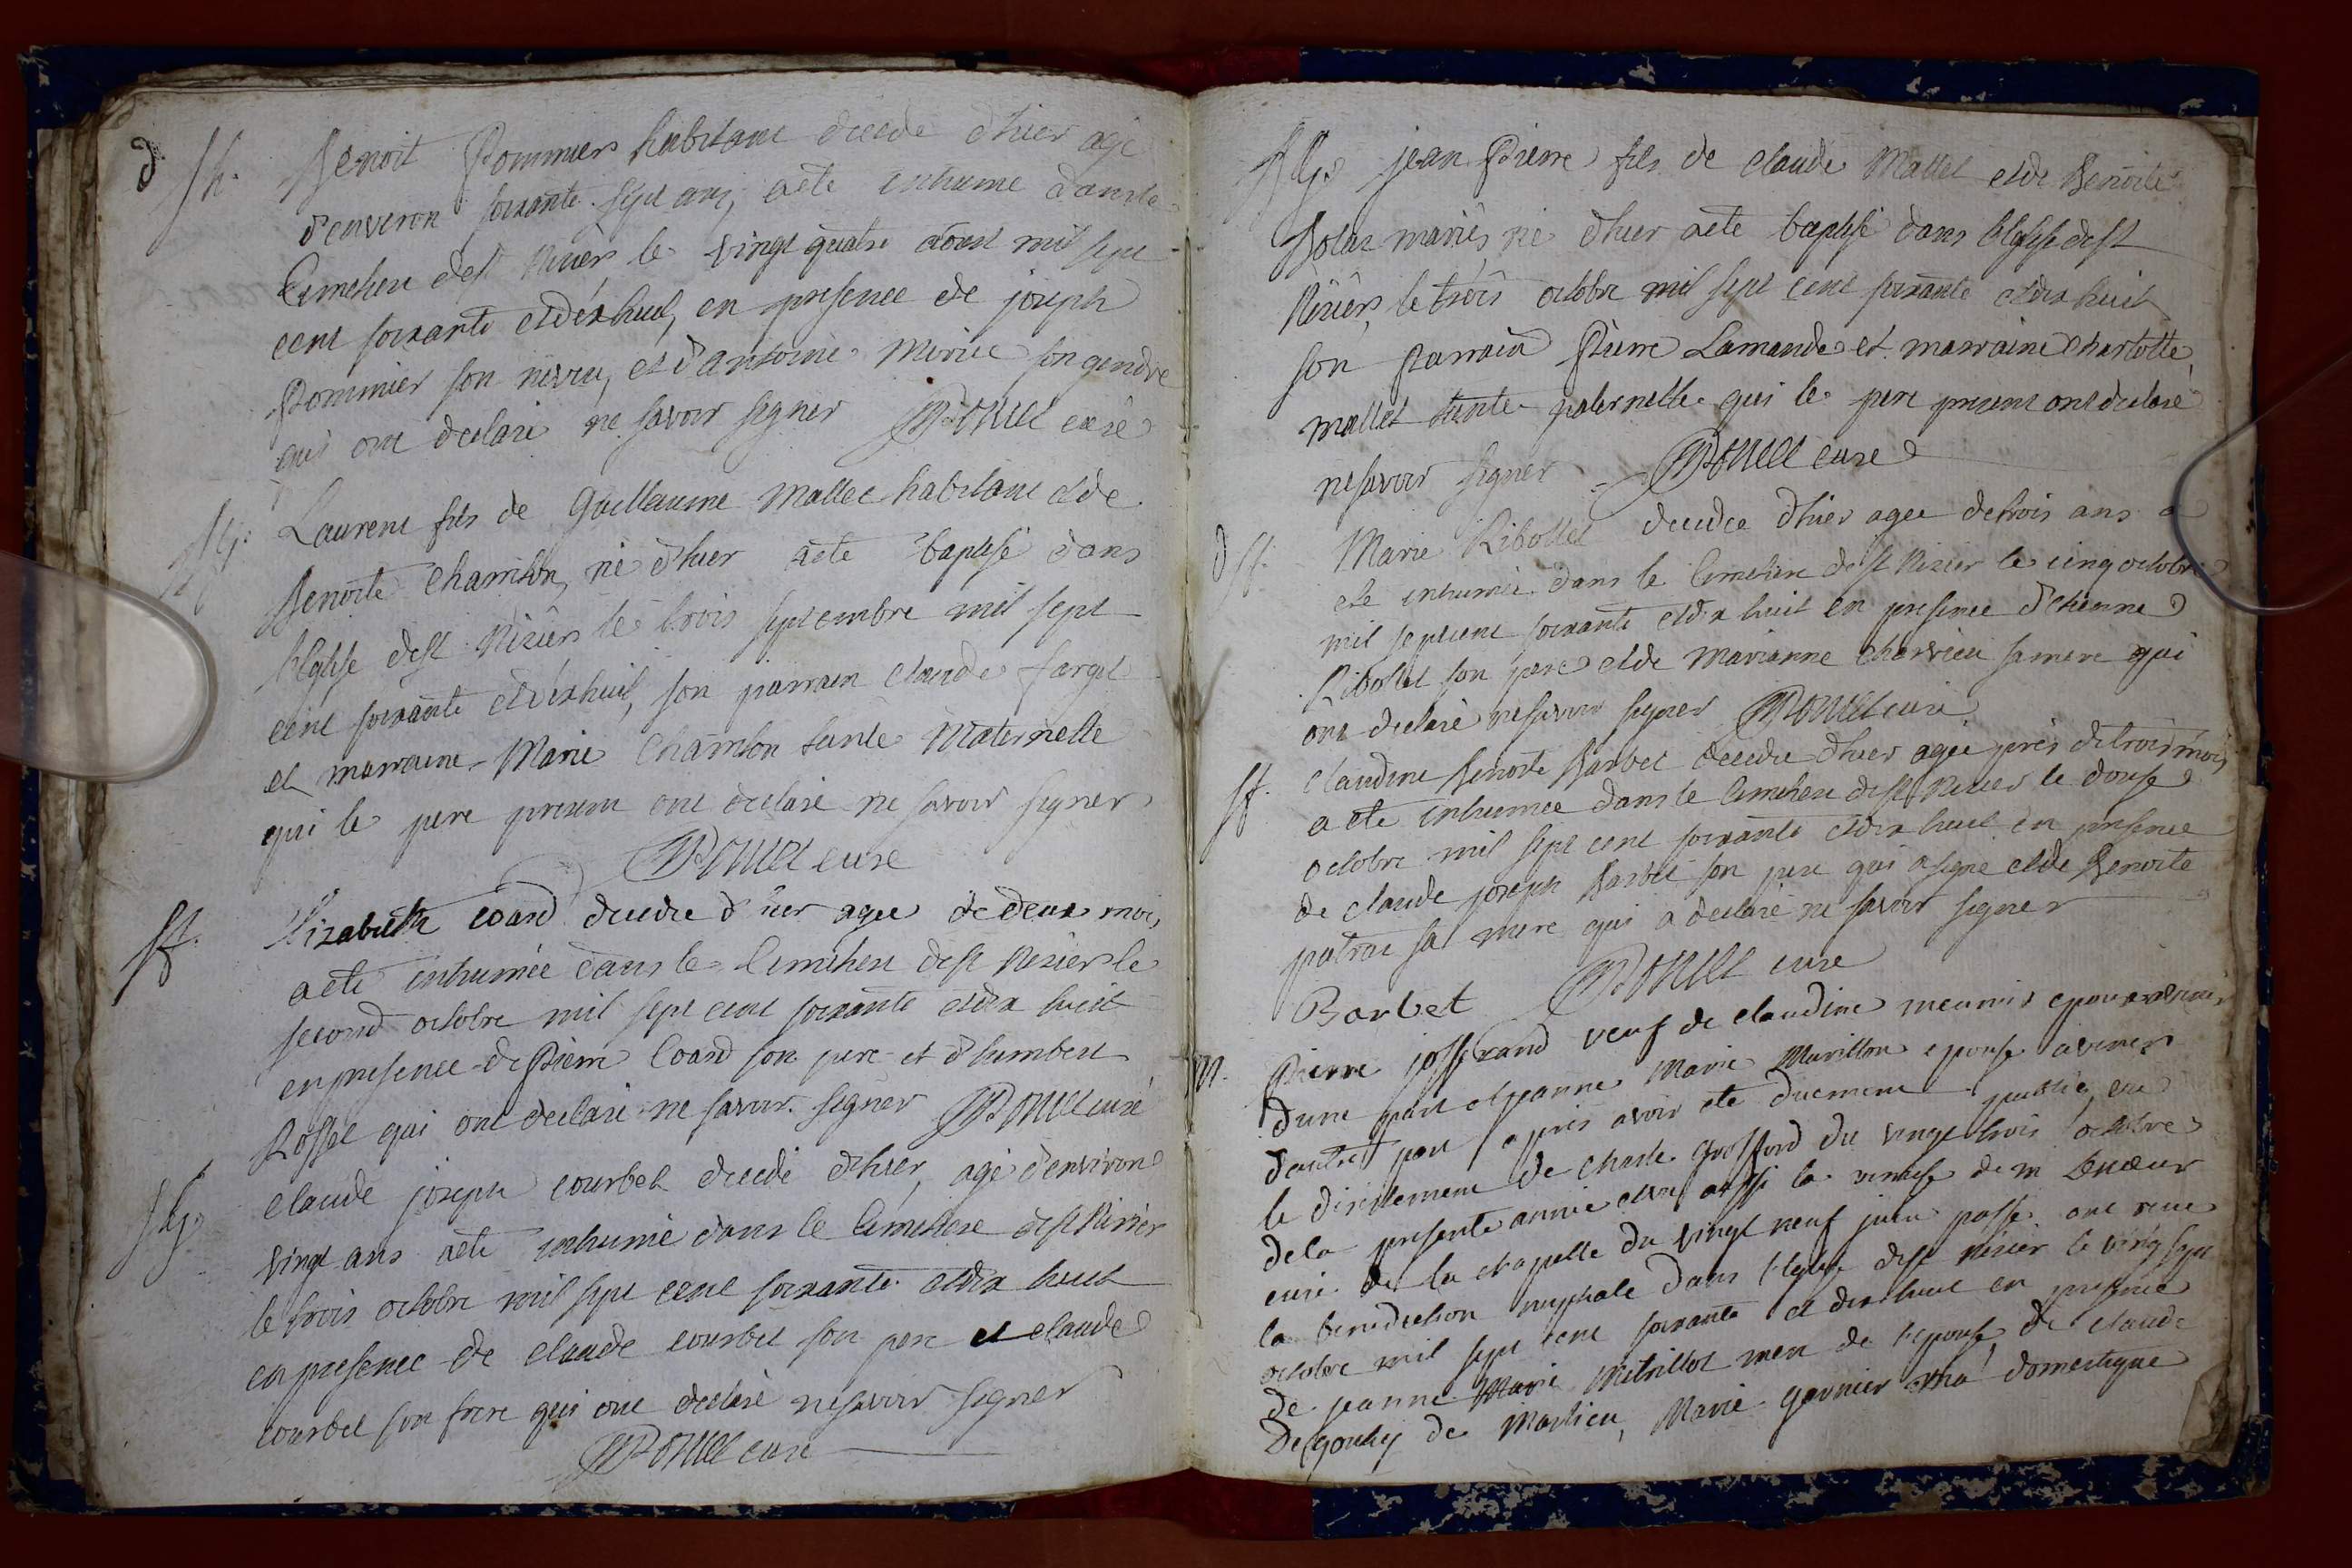 d sh. Benoit Pommier habitant decede d'hier agé
d'environ soixante sept ans, a eté inhumé dans le
Cimetiere de st Nizier le vingt quatre aoust mil sept
cent soixante et dix huit, en presence de joseph
Pommier son neveu, et d'antoine son gendre
qui ont declaré ne savoir signer Ponvet curé
sg. Laurent fils de Guillaume Mallet habitant et de
Benoite Chambon, né d'hier a eté baptisé dans
l'Eglise de st Nizier le trois septembre mil sept
cent soixante et dix huit, son parrain Claude farget
et marraine Marie Chambon tante Maternelle
qui le pere present ont declaré ne savoir signer
Ponvet curé
sf. Elizabeth coard decedée d'hier agée de deux mois,
a eté inhumée dans le Cimetiere de st Nizier le
second octobre mil sept cent soixante et dix huit
en presence de Pierre Coard son pere et d'humbert
Rosset qui ont declaré ne savoir signer Ponvet curé
sg. claude joseph courbet decedé d'hier, agé d'environ
vingt ans a eté inhumé dans le Cimetiere de st Nizier
le trois octobre mil sept cent soixante et dix huit
en presence de claude courbet son pere et claude
courbet son frere qui ont declaré ne savoir signer
Ponvet curé
sg. jean Pierre fils de claude Mallet et de Benoite
mariés, né d'hier a eté baptisé dans l'Eglise de st
Nizier, le trois octobre mil sept cent soixante et dix huit
son Parrain Pierre Lamande et marraine Charlotte
mallet tante paternelle qui le pere present ont declaré
ne savoir signer Ponvet curé
d sf. Marie Ribollet decedée d'hier agée de trois ans a
eté inhumée dans le Cimetiere de st Nizier le cinq octobre
mil sept cent soixante et dix huit en presence d'etienne
Ribollet son pere et de Marianne Chervieu sa mere qui
ont declaré ne savoir signer Ponvet curé
sf. claudine Benoite Barbet decedée d'hier agée près de trois mois
a eté inhumée dans le Cimetiere de st Nizier le douse
octobre mil sept cent soixante et dix huit en presence
de claude joseph Barbet son pere qui a signé et de Benoite
patron sa mere qui a declaré ne savoir signer
Barbet Ponvet curé
m. Pierre josserand veuf de claudine meunier epoux a venir
d'une part et jeanne Marie epouse a venir
d'autre part après avoir eté duement publié, vu
le de Charle du vingt trois octobre
de la presente année et vu aussi la remise de m
curé de la chapelle du vingt neuf juin passé ont reçu
la benediction nuptiale dans l'Eglise de st Nizier le vingt sept
octobre mil sept cent soixante et dix huit en presence
de jeanne Marie mere de l'epouse, de claude
de Marlieu, Marie garnier ma domestique